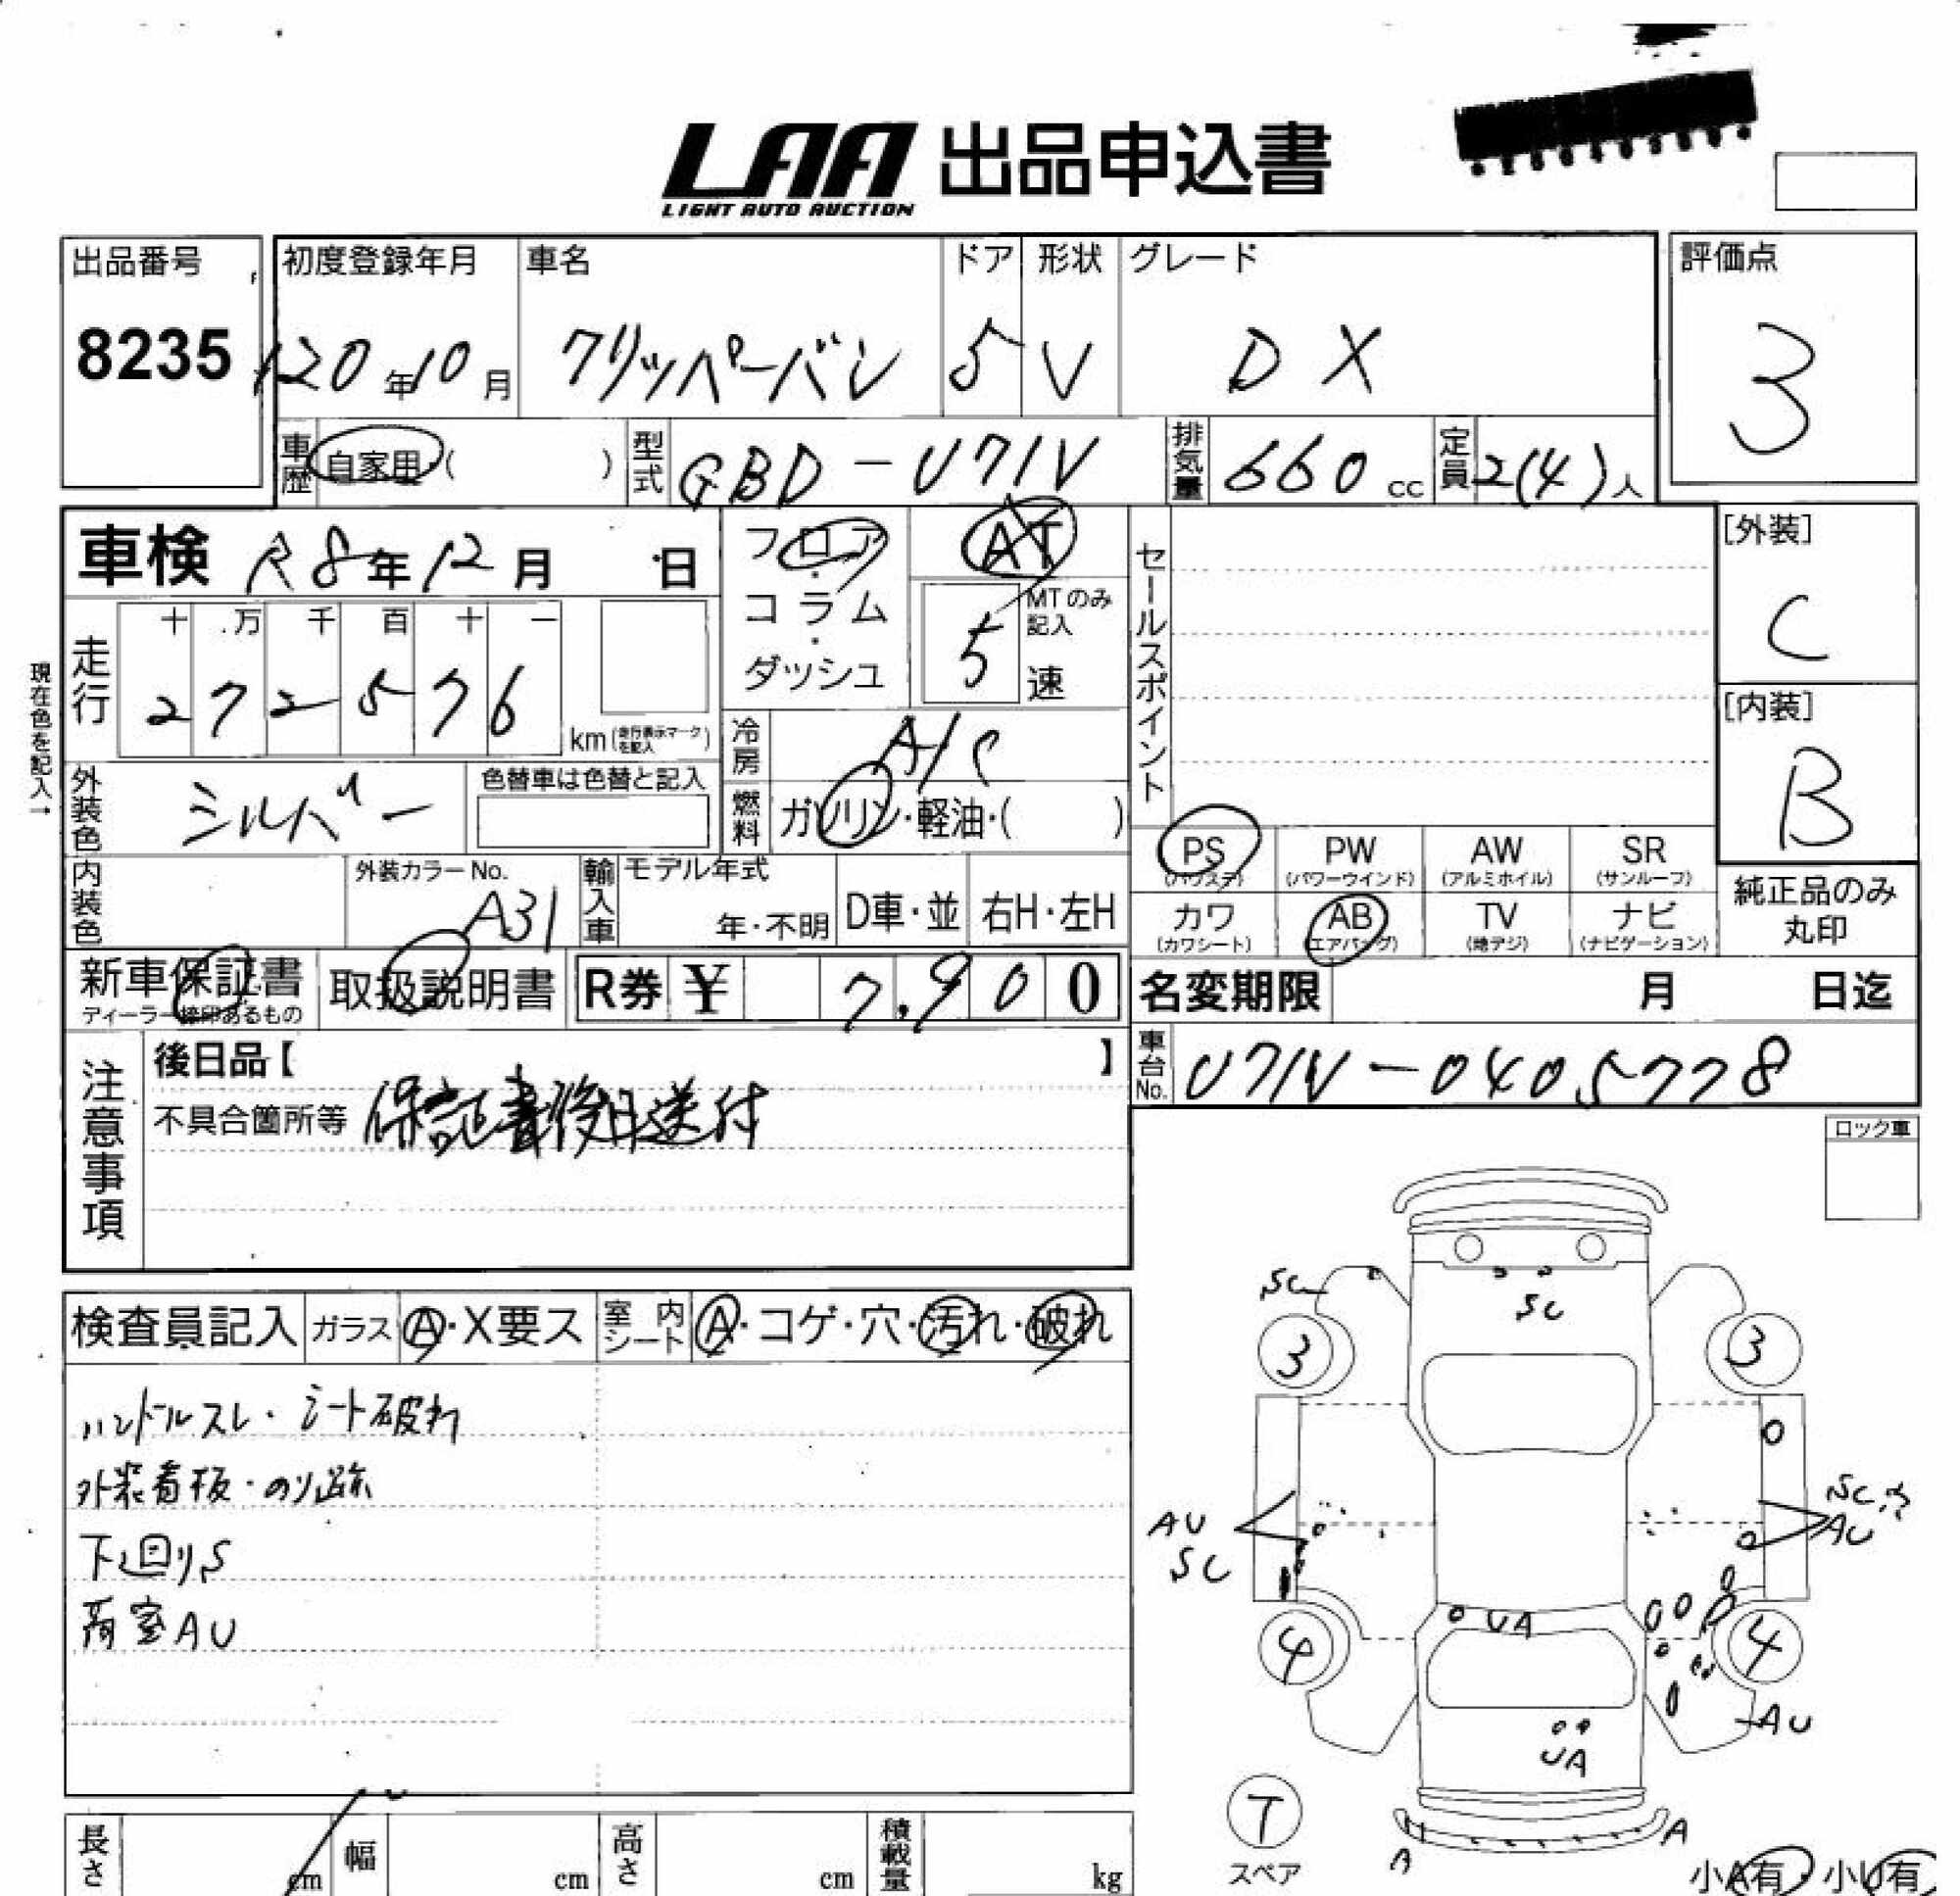 LAA 出品申込書
LIGHT AUTO AUCTION
出品番号 初度登録年月 車名 ドア 形状 グレード 評価点
8235 H20年10月 クリッパーバン 5 V DX 3
車歴 自家用・( ) 型式 GBD-U71V 排気量 660 cc 定員 2(4)人
車検 R8年12月 日 フロア・コラム・ダッシュ AT セールスポイント [外装]
C
MTのみ記入
5 速
走行 十 万 千 百 十 一
272576 km(走行表示マークを記入)
[内装]
B
現在色を記入→
冷房 A/C
外装色 シルバー 色替車は色替と記入 燃料 ガソリン・軽油・( )
PS PW AW SR
(パワステ) (パワーウインド) (アルミホイル) (サンルーフ)
内装色 外装カラーNo. A31 輸入車 モデル年式 年・不明 D車・並 右H・左H
カワ AB TV ナビ
(カワシート) (エアバッグ) (地デジ) (ナビゲーション)
純正品のみ
丸印
新車保証書 取扱説明書 R券 ¥ 7,900 名変期限 月 日迄
ディーラー捺印あるもの
注意事項 後日品【 】 車台No. U71V-0405778
不具合箇所等 保証書後日送付
ロック車
検査員記入 ガラス A・X要ス 室内シート A・コゲ・穴・汚れ・破れ
ハンドルスレ・シート破れ
外装看板・のり跡
下廻りS
荷室AU
SC SC
3 3
AU SC
SC AU
UA
4 4
AU
UA
T
スペア
A A
小A有 小U有
長さ cm 幅 cm 高さ cm 積載量 kg